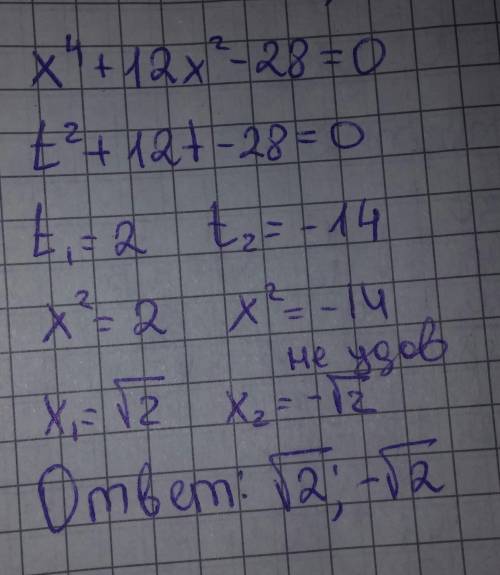 x⁴ + 12x² - 28 = 0
t² + 12t - 28 = 0
t₁ = 2 t₂ = -14
x² = 2 x² = -14
не удов
x₁ = √2 x₂ = -√2
Ответ: √2; -√2